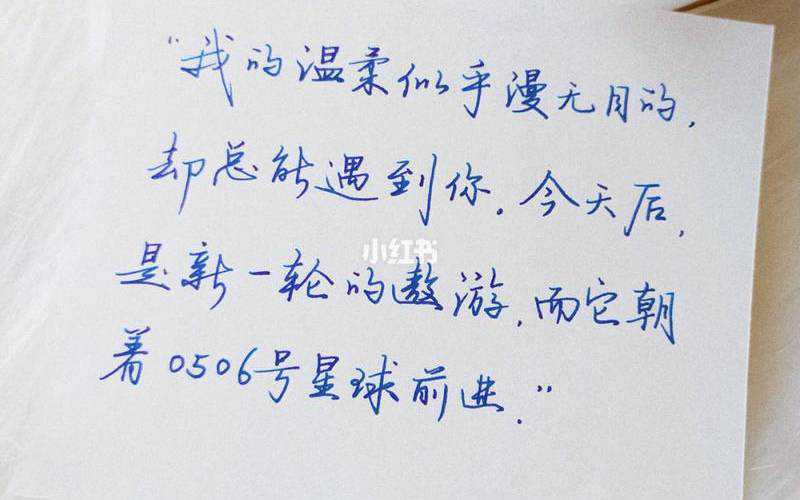 “我的温柔似乎漫无目的,
却总能遇到你.今天后,
是新一轮的遨游,而它朝
着0506号星球前进.”
小红书